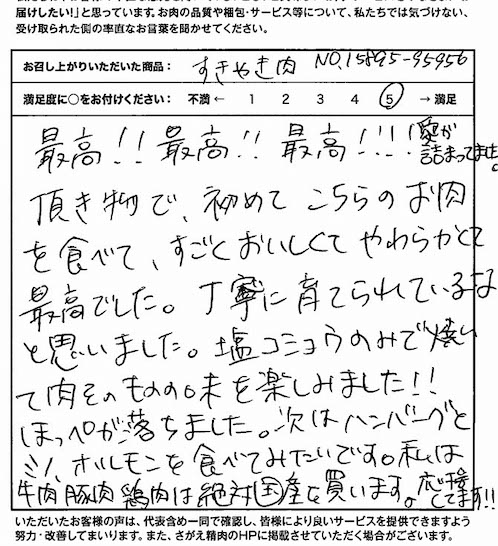 届けしたい!」と思っています。お肉の品質や梱包・サービス等について、私たちでは気づけない、
受け取られた側の率直なお言葉を聞かせてください。
お召し上がりいただいた商品: すきやき肉 NO.15895-95956
満足度に○をお付けください: 不満 ← 1 2 3 4 5 → 満足
最高!! 最高!! 最高!!!! 愛が
詰まってます。
頂き物で、初めてこちらのお肉
を食べて、すごくおいしくてやわらかくて
最高でした。丁寧に育てられているな
と思いました。塩コショウのみで焼い
て肉そのものの味を楽しみました!!
ほっぺが落ちました。次はハンバーグと
ミノ、ホルモンを食べてみたいです。私は
牛肉豚肉鶏肉は絶対国産を買います。応援
してます!!
いただいたお客様の声は、代表含め一同で確認し、皆様により良いサービスを提供できますよう
努力・改善してまいります。また、さがえ精肉のHPに掲載させていただく場合がございます。